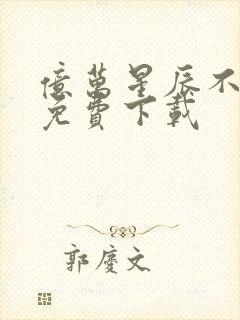 億萬星辰不
免費下載
郭慶文